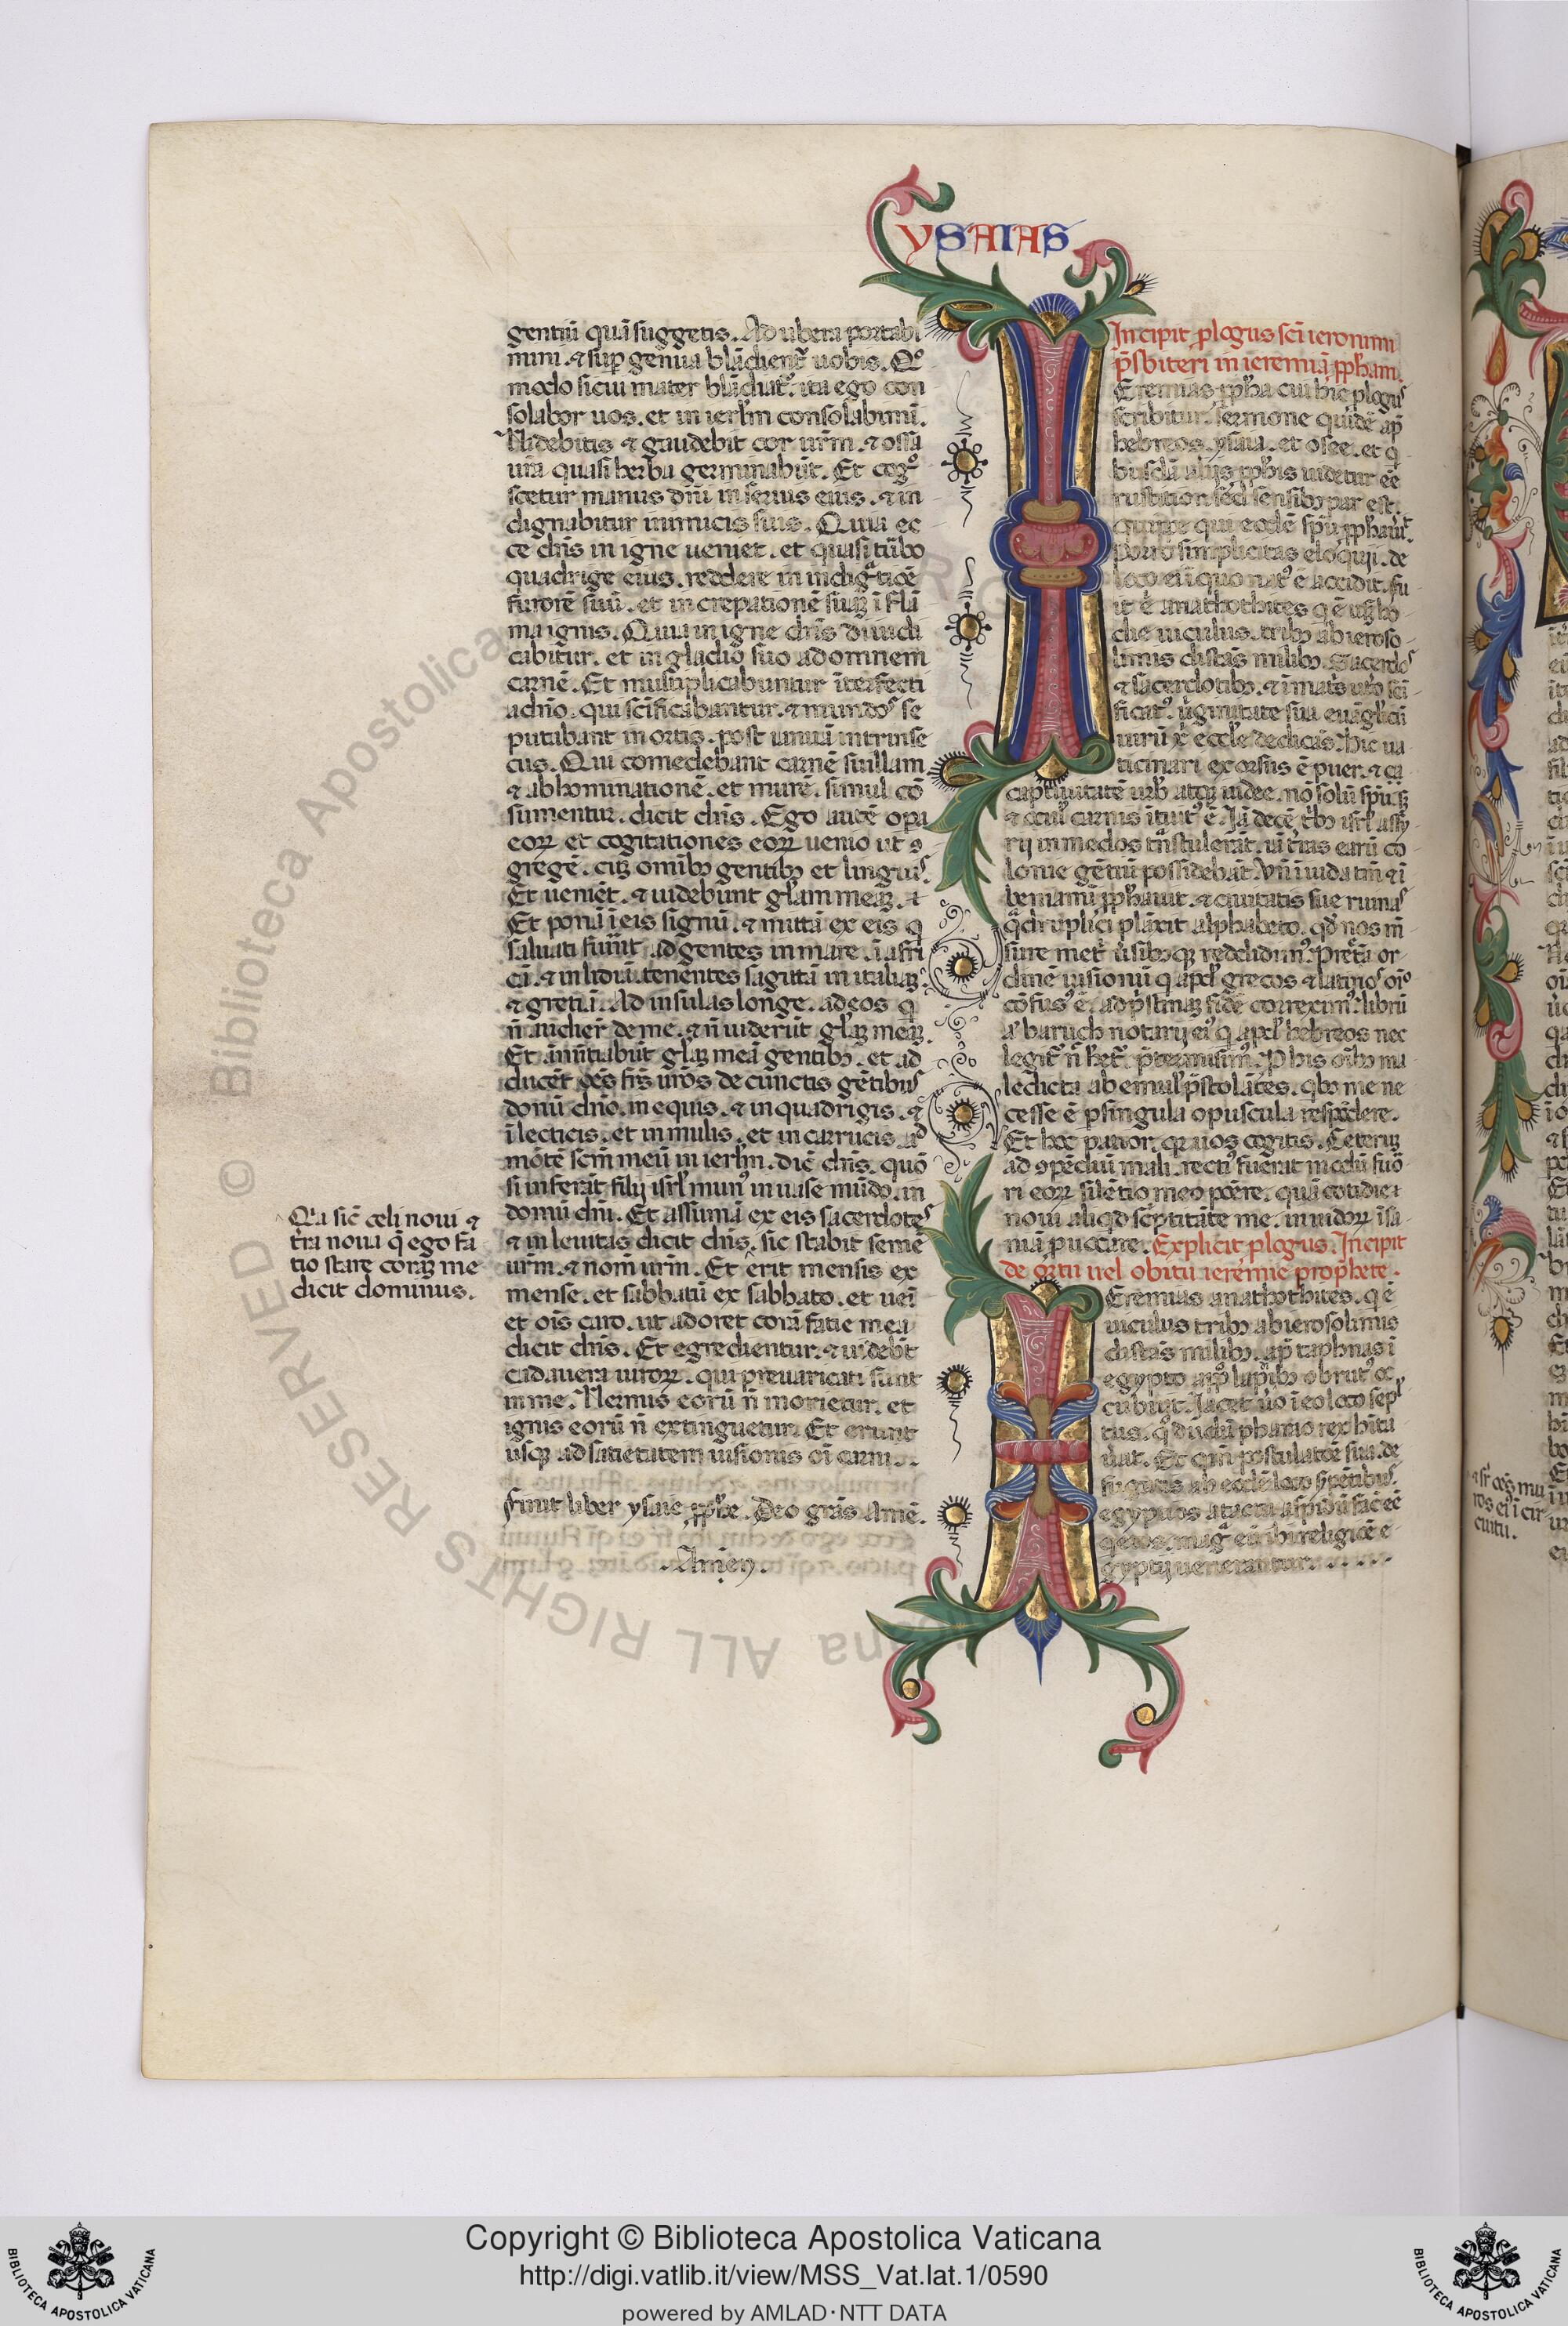 YSAIAS
gentiū quā suggetis. Ad ubera portabi
mini. ⁊ sup genua blādient᷑ uobis. Qͦ
modo sicui mater blādiat᷑. ita ego con
solabor uos. et in ierl̄m consolabimī.
Uidebitis ⁊ gaudebit cor ur̄m. ⁊ ossa
ura quasi herba germinabūt. Et cog
scetur manus dn̄i in seruis eius. ⁊ in
dignabitur inimicis suis. Quia ec
ce dn̄s in igne ueniet. et quasi tūbo
quadrige eius. reddere in indigᵃtiōē
furorē suū. et increpationē suaꝫ ī flā
ma ignis. Quia in igne dn̄s diiudi
cabitur. et in gladio suo ad omnem
carnē. Et multiplicabuntur īterfecti
a dn̄o. qui sc̄ificabantur. ⁊ mundos se
putabant in ortis. post ianuā intrinse
cus. Qui comedebant carnē suillam
⁊ abhominationē. et murē. simul cō
sumentur. dicit dn̄s. Ego autē opa
eoꝝ et cogitationes eoꝝ uenio ut ꝯ
gregē. cuꝫ omībꝫ gentibꝫ et linguis.
Et ueniēt. ⁊ uidebunt gl̄am meaꝫ. ⁊
Et ponā ī eis signū. ⁊ mittā ex eis q
saluati fuerīt ad gentes in mare. ī afri
cā. ⁊ in lidiā. tenentes sagittā in italiaꝫ.
⁊ gretiā. Ad insulas longe. ad eos q
n̄ audier̄ de me. ⁊ n̄ uiderūt gl̄aꝫ meaꝫ.
Et ānūtiabūt gl̄aꝫ meā gentibꝫ. et ad
ducēt oēs fr̄s ur̄os de cunctis gētibus
donū dn̄o. in equis. ⁊ in quadrigis. ⁊
ī lecticis. et in mulis. et in carrucis. ad
mōtē sc̄m meū in ierl̄m. dic̄ dn̄s. quō
si inferāt filij isr̄l mun᷒ in uase mūdo. in
domū dn̄i. Et assumā ex eis sacerdotes
⁊ in leuitas dicit dn̄s. sic stabit semē
ur̄m. ⁊ nom̄ ur̄m. Et erit mensis ex
mense. et sabbatū ex sabbato. et ueī
et oīs caro. ut adoret corā fatie mea
dicit dn̄s. Et egredientur. ⁊ uidebūt
cadauera uiroꝝ. qui preuaricati sunt
in me. Uermis eorū n̄ morietur. et
ignis eorū n̄ extinguetur. Et erunt
usqꝫ ad satietatem uisionis oī carni.
finit liber ysaie ꝓphe. Deo grās Amē.
.Amen.
Qͣ sic̄ celi noui ⁊
tr̄a noua q̄ ego fa
tio stare coraꝫ me
dicit dominus.
Incipit ꝓlogus sc̄i ieronimi
p̄sbiteri in ieremiā ꝓpham.
Eremias ꝓpha cui hic ꝓlogus
scribitur. sermone quidē ap̄
hebreos. ysaia. et osee. et q
busdā alijs ꝓphis uidetur eē
rusticior. sed sensibꝫ par est.
quippe qui eodē spū ꝓphaūt.
Porro simplicitas eloquij. de
loco ei ī quo nat᷒ ē accidit. fu
it ē anathothites q ē usqꝫ ho
die uiculus. tribꝫ ab ieroso
limis distās milibꝫ. Sacerdos
⁊ sacerdotibꝫ. ⁊ ī mat᷑s utō sc̄i
ficat᷒. uirginitate sua euāgl̄icū
uirū xp̄i ecclē dedicās. Hic ua
ticinari exorsus ē puer. ⁊ ca
captiuitatē urb̄ atqꝫ iudee. nō solū spū. sꝫ
⁊ oculis carnis ītuit᷒ ē. Iā decē tribꝫ isr̄l assy
rij in medos trāstulerāt. iā t᷑ras earū co
lonie gētiū possidebāt. Uñ ī iuda tm̄ ⁊ ī
beniamī ꝓphauit. ⁊ ciuitatis sue ruinas
qͣdruplici plāxit alphabeto. qd̄ nos m̄
sure metⁱ uersibꝫqꝫ reddidim᷒. Pret᷑a or
dinē uisionū q apd̄ grecos ⁊ latinos oīo
cōfus᷒ ē. ad p̄stinaꝫ fidē correxim᷒. librū
aͧ baruch notarij ei᷒ q apd̄ hebreos nec
legit᷑ n̄ het᷑. p̄termisim᷒. P his oībꝫ ma
ledicta ab emul̄ p̄stolātes. qbꝫ me ne
cesse ē p singula opuscula respōdere.
Et hoc patior. qꝛ uos cogitis. Ceteruꝫ
ad ꝯpēdiū mali. recti᷒ fuerat modū fuo
ri eoꝝ silētio meo poēre. quā cotidie
noui aliqd scriptitāte me. inuidoꝝ īsa
niā puocare. Explicit ꝓlogus. Incipit
de ortu uel obitu ieremie prophete.
Eremias anathothites. q ē
uiculus tribꝫ ab ierosolimis
distās milibꝫ. ap̄ taphnas ī
egypto a ip̄o lapibꝫ obrut᷒ oc
cubuit. Iacet uō ī eo loco sepl̄
tus. qͦ dudū pharao rex hita
uat. Et qm̄ postulatōē sua. de
fugatis ab eodē loco sp̄etibus.
egyptios a tactu aspidū fac̄ eē
q̄etos. magͣ eū ibi religiōē e
gyptij uenerantur.
Copyright © Biblioteca Apostolica Vaticana
http://digi.vatlib.it/view/MSS_Vat.lat.1/0590
powered by AMLAD·NTT DATA
BIBLIOTECA APOSTOLICA VATICANA
BIBLIOTECA APOSTOLICA VATICANA